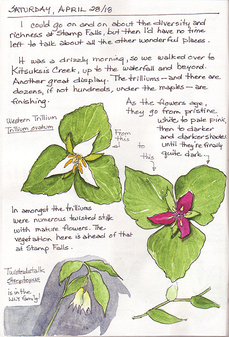 SATURDAY, APRIL 28/18
I could go on and on about the diversity and
richness at Stamp Falls, but then I'd have no time
left to talk about all the other wonderful places.
It was a drizzly morning, so we walked over to
Kitsuksis Creek, up to the waterfall and beyond.
Another great display. The trilliums — and there are
dozens, if not hundreds, under the maples — are
finishing.
As the flowers age,
they go from pristine
white, to pale pink,
then to darker
and darker shades
until they're finally
quite dark.
Western Trillium
Trillium ovatum
From
this
to
this
In amongst the trilliums
were numerous twisted stalk
with mature flowers. The
vegetation here is ahead of that
at Stamp Falls.
Twistedstalk
Streptopus
is in the
LILY family!